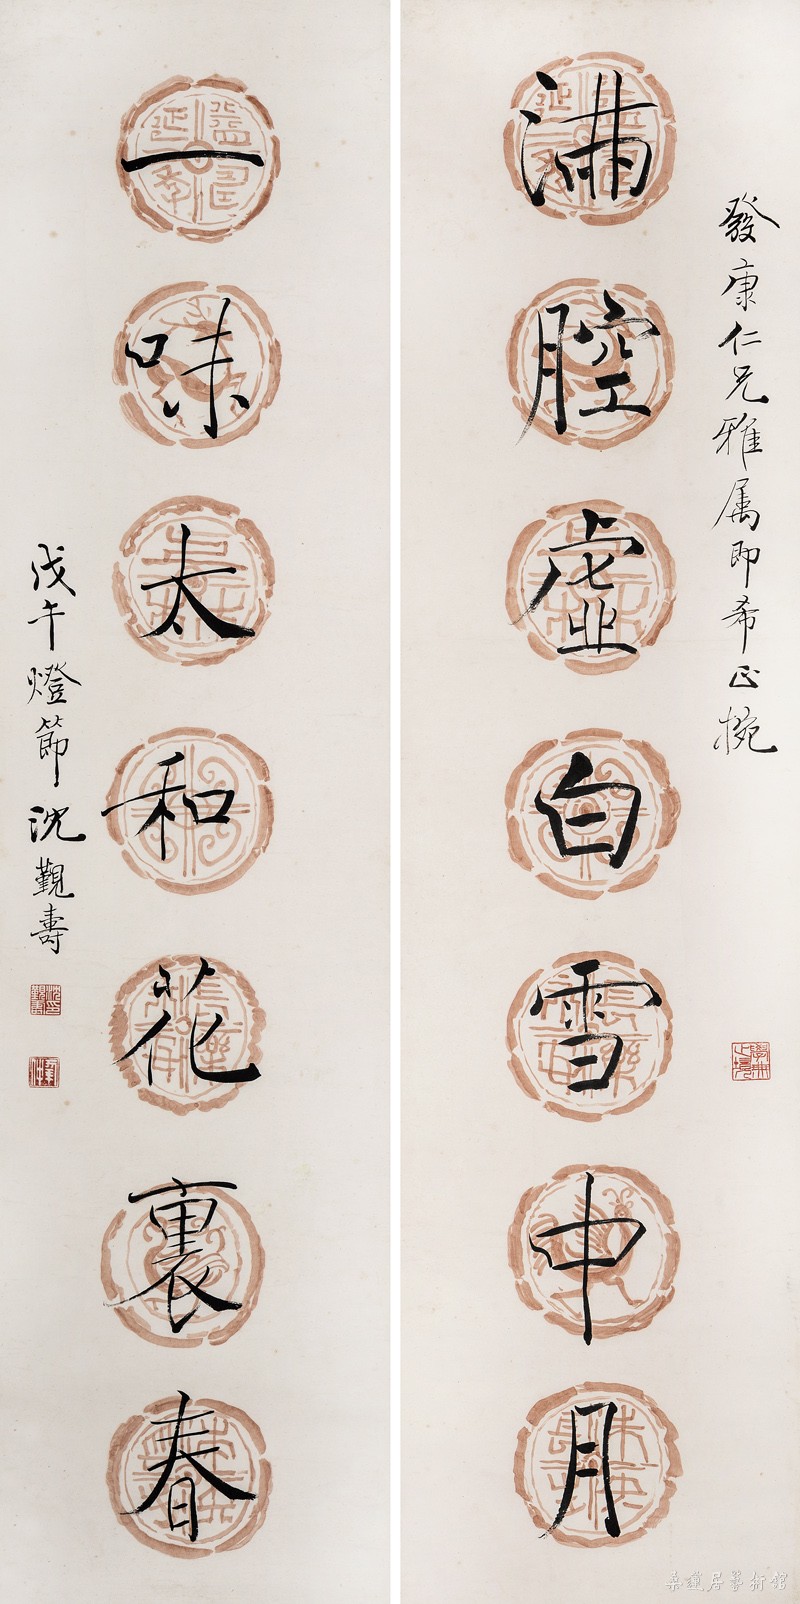 發康仁兄雅属即希正捥
滿腔虛白雪中月
一味太和花裏春
戊午燈節沈覲壽
桑蓮居藝術館